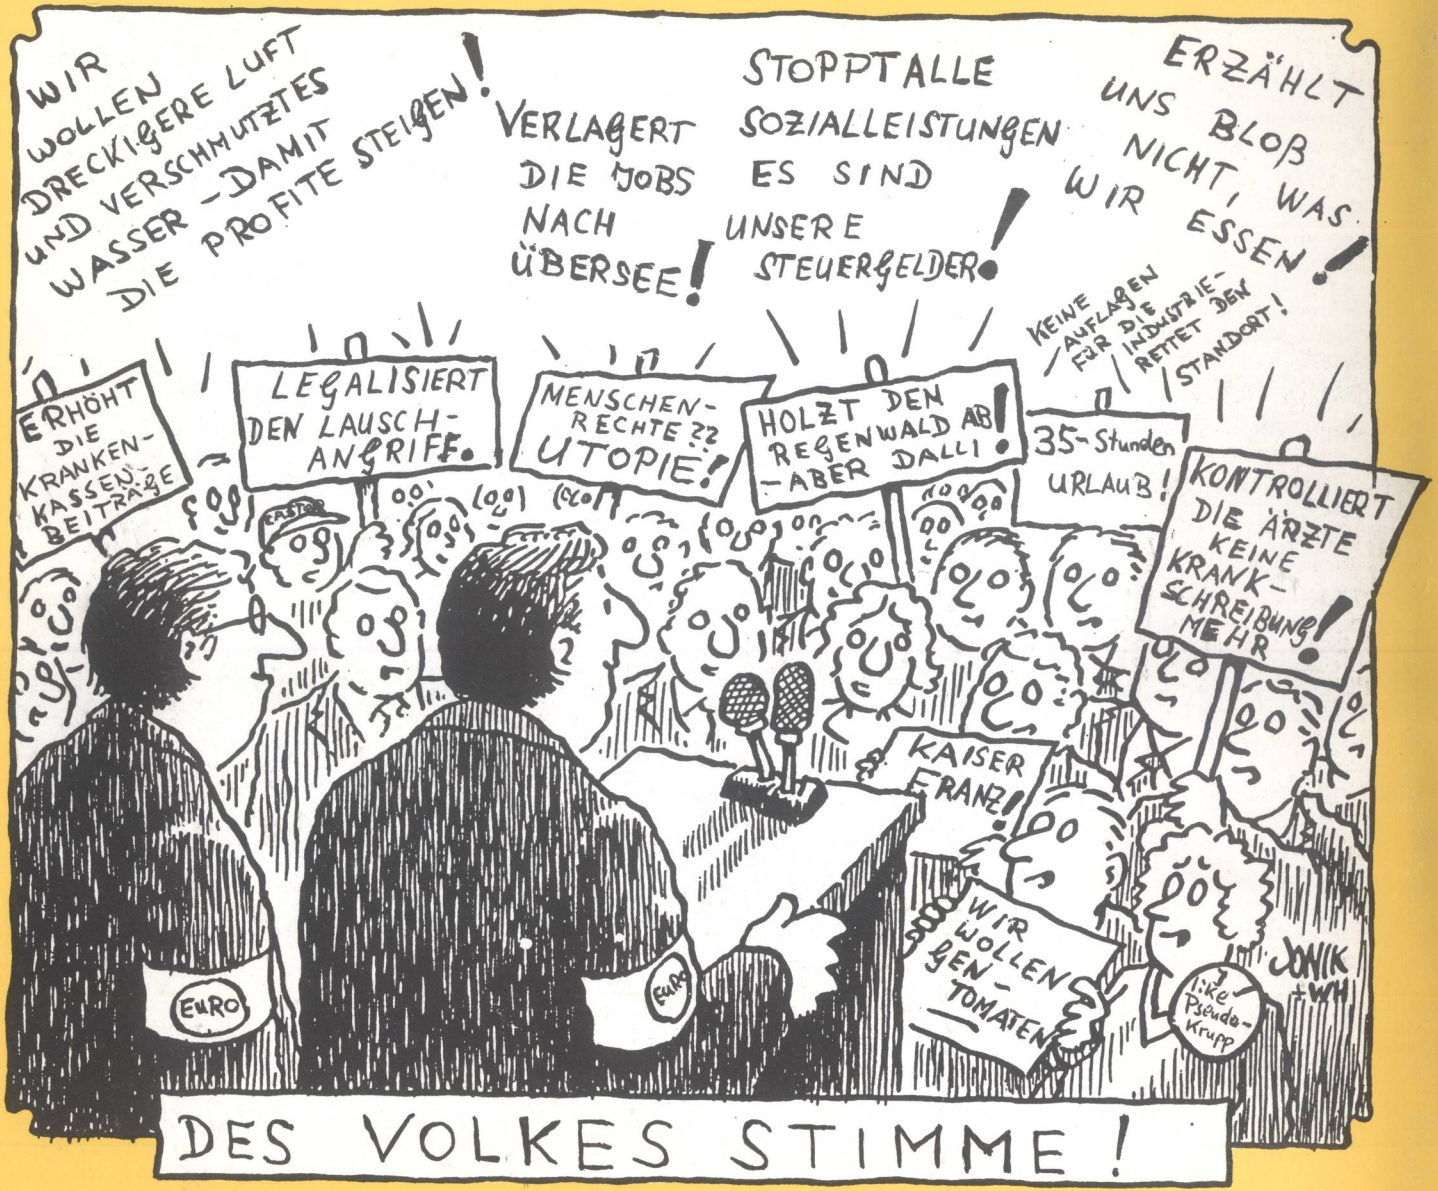 WIR
WOLLEN
DRECKIGERE LUFT
UND VERSCHMUTZTES
WASSER – DAMIT
DIE PROFITE STEIGEN!
VERLAGERT
DIE JOBS
NACH
ÜBERSEE!
STOPPT ALLE
SOZIALLEISTUNGEN
ES SIND
UNSERE
STEUERGELDER!
ERZÄHLT
UNS BLOß
NICHT, WAS
WIR ESSEN!
KEINE
AUFLAGEN
FÜR DIE
INDUSTRIE–
RETTET DEN
STANDORT!
ERHÖHT
DIE
KRANKEN-
KASSEN-
BEITRÄGE
LEGALISIERT
DEN LAUSCH-
ANGRIFF.
MENSCHEN-
RECHTE??
UTOPIE!
HOLZT DEN
REGENWALD AB!
– ABER DALLI
35-Stunden
URLAUB!
KONTROLLIERT
DIE ÄRZTE
KEINE
KRANK-
SCHREIBUNG
MEHR!
CASTOR
KAISER
FRANZ!
WIR
WOLLEN
GEN-
TOMATEN
I
like
Pseudo-
Krupp
JONIK
+WH
EURO
EURO
DES VOLKES STIMME!